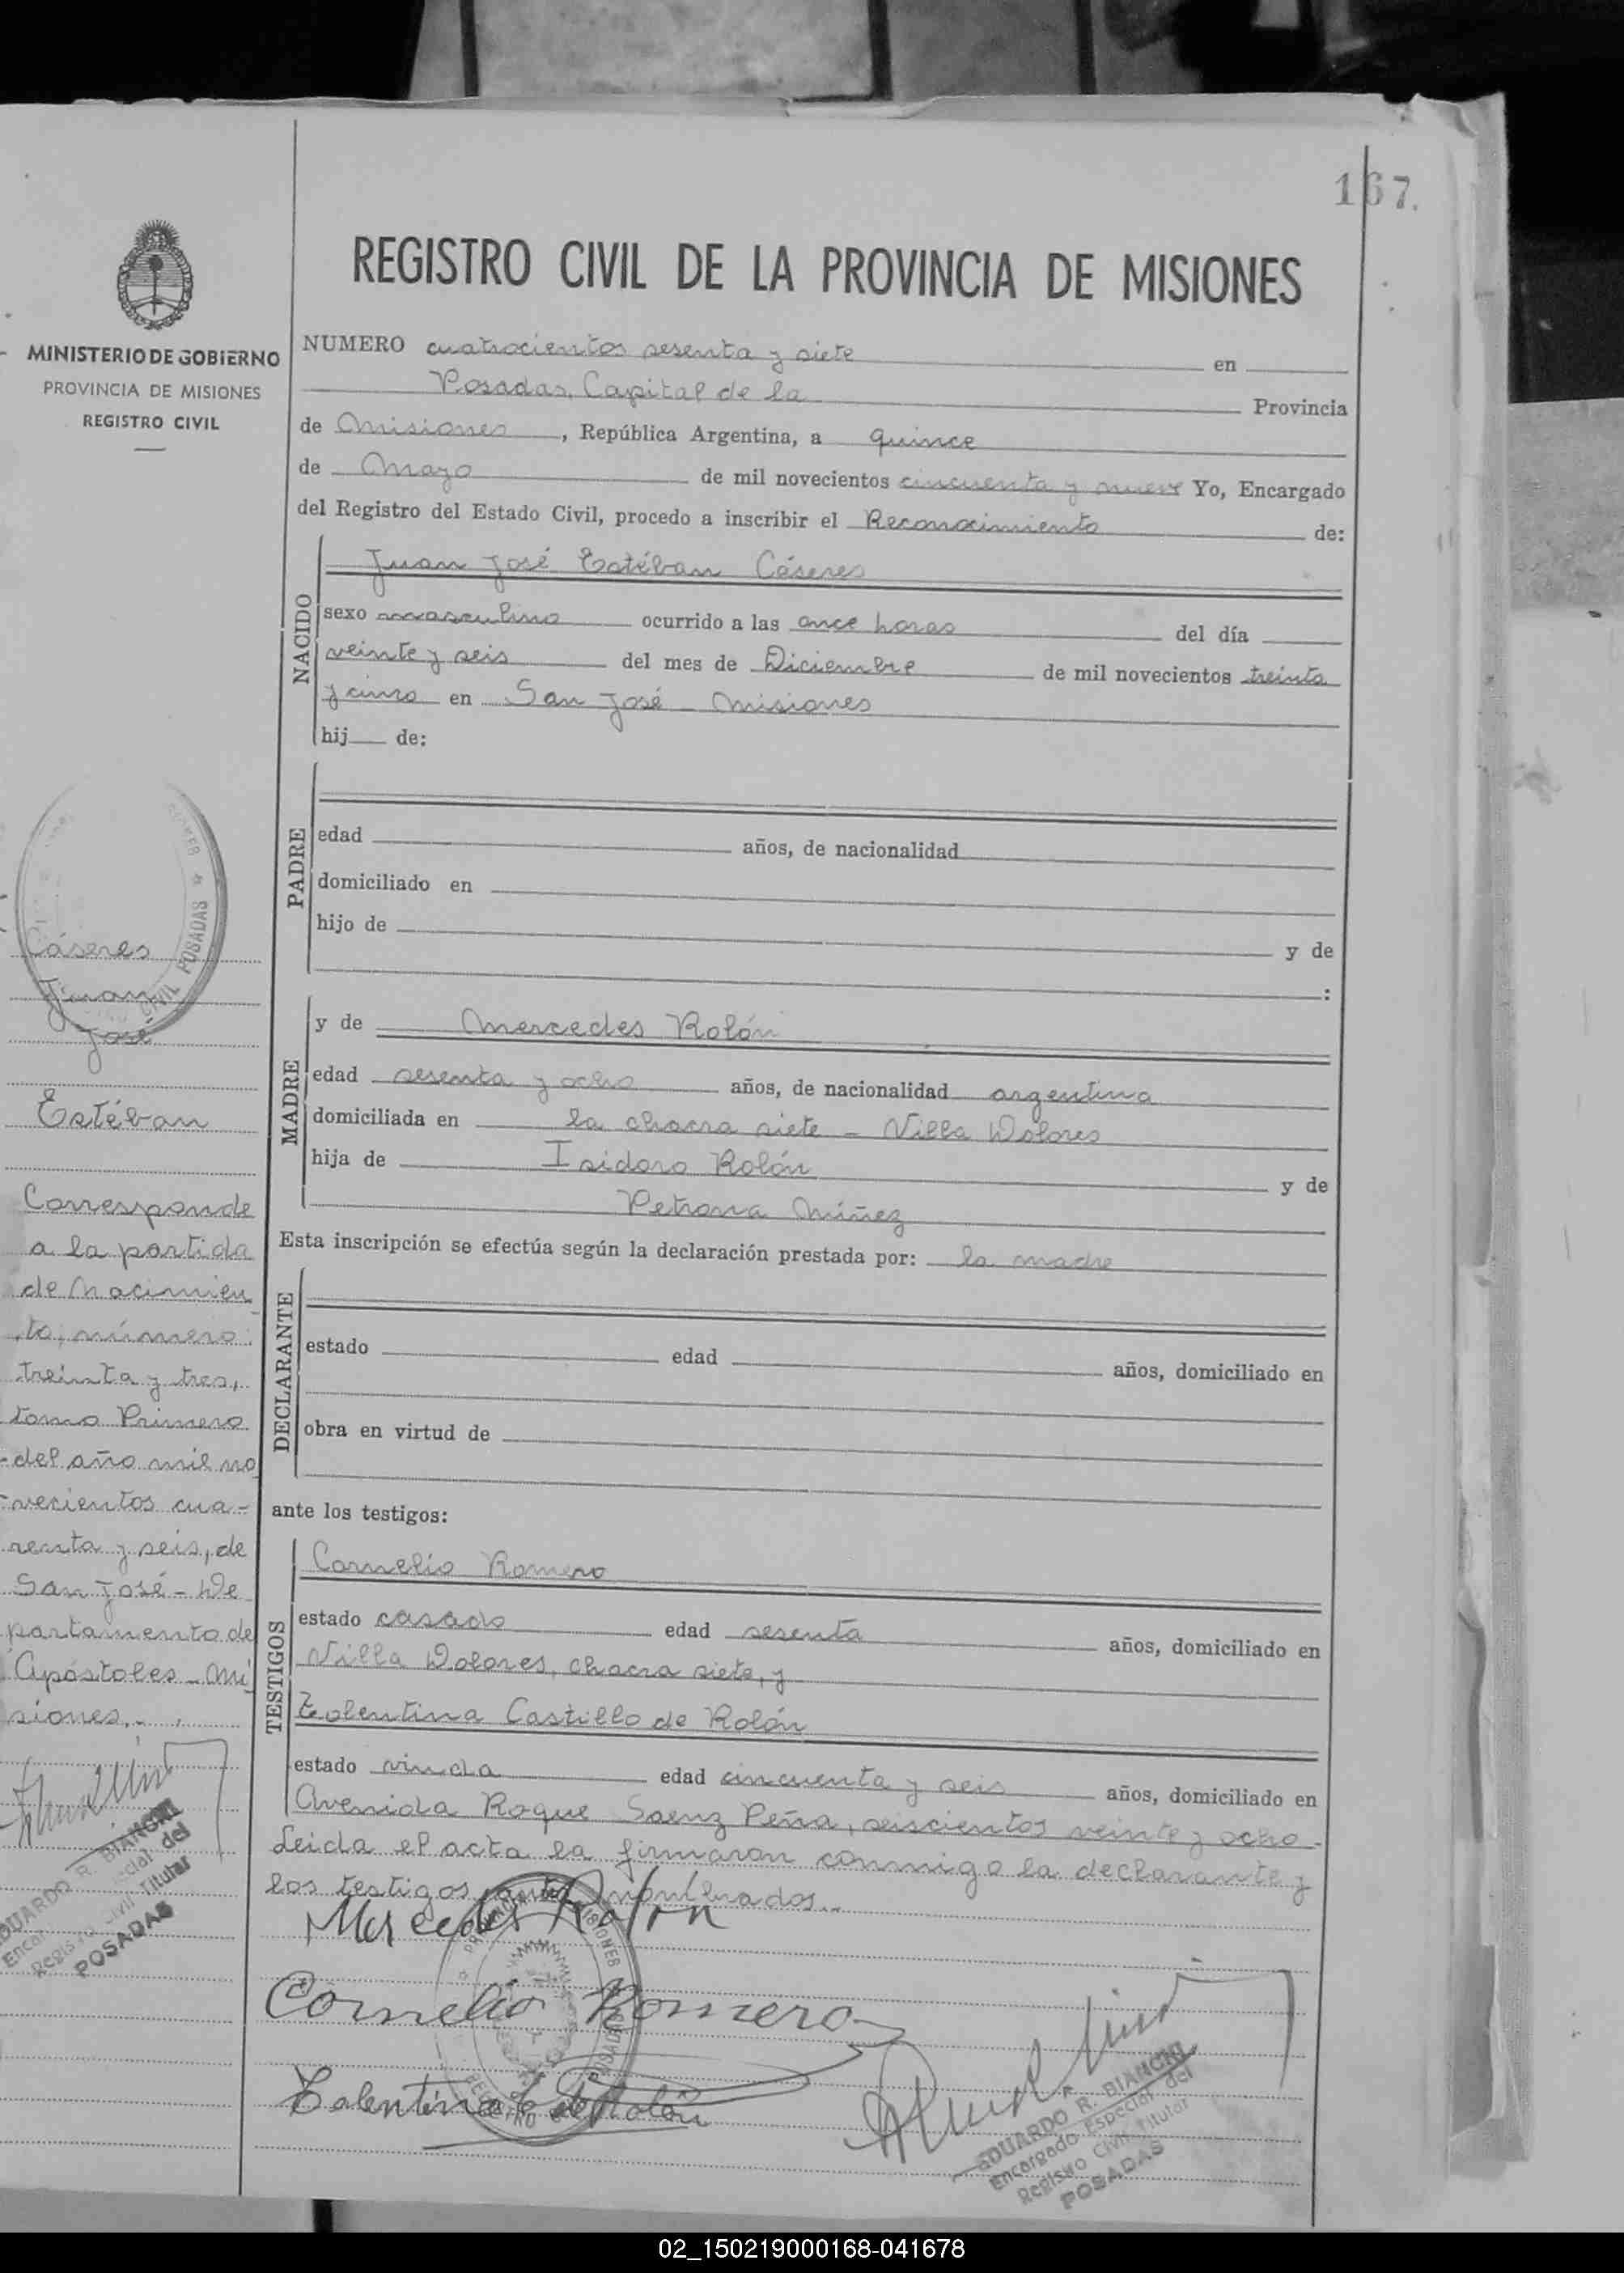 167.
REGISTRO CIVIL DE LA PROVINCIA DE MISIONES
MINISTERIO DE GOBIERNO
PROVINCIA DE MISIONES
REGISTRO CIVIL
NUMERO cuatrocientos sesenta y siete en
Posadas, Capital de la Provincia
de Misiones, República Argentina, a quince
de Mayo de mil novecientos cincuenta y nueve Yo, Encargado
del Registro del Estado Civil, procedo a inscribir el Reconocimiento de:
NACIDO
Juan José Estéban Cáseres
sexo masculino ocurrido a las once horas del día
veinte y seis del mes de Diciembre de mil novecientos treinta
y cinco en San José - Misiones
hij de:
PADRE
edad años, de nacionalidad
domiciliado en
hijo de y de
:
MADRE
y de Mercedes Rolón
edad sesenta y ocho años, de nacionalidad argentina
domiciliada en la chacra siete - Villa Dolores
hija de Isidoro Rolón y de
Petrona Núñez
Esta inscripción se efectúa según la declaración prestada por: la madre
DECLARANTE
estado edad años, domiciliado en
obra en virtud de
ante los testigos:
TESTIGOS
Cornelio Romero
estado casado edad sesenta años, domiciliado en
Villa Dolores, chacra siete, y
Tolentina Castillo de Rolón
estado viuda edad cincuenta y seis años, domiciliado en
Avenida Roque Saenz Peña, seiscientos veinte y ocho.
Leida el acta la firmaron conmigo la declarante y
los testigos antes nombrados..
Mercedes Rolon
Cornelio Romero
Tolentina C de Rolón
EDUARDO R. BIANCHI
Encargado Especial del
Registro Civil Titular
POSADAS
Cáseres
Juan
José
Estéban
Corresponde
a la partida
de Nacimien
to, número
treinta y tres,
tomo Primero
del año mil no
vecientos cua-
renta y seis, de
San José - De
partamento de
Apóstoles - Mi
siones.-
EDUARDO R. BIANCHI
Registro Civil Titular
POSADAS
02_150219000168-041678